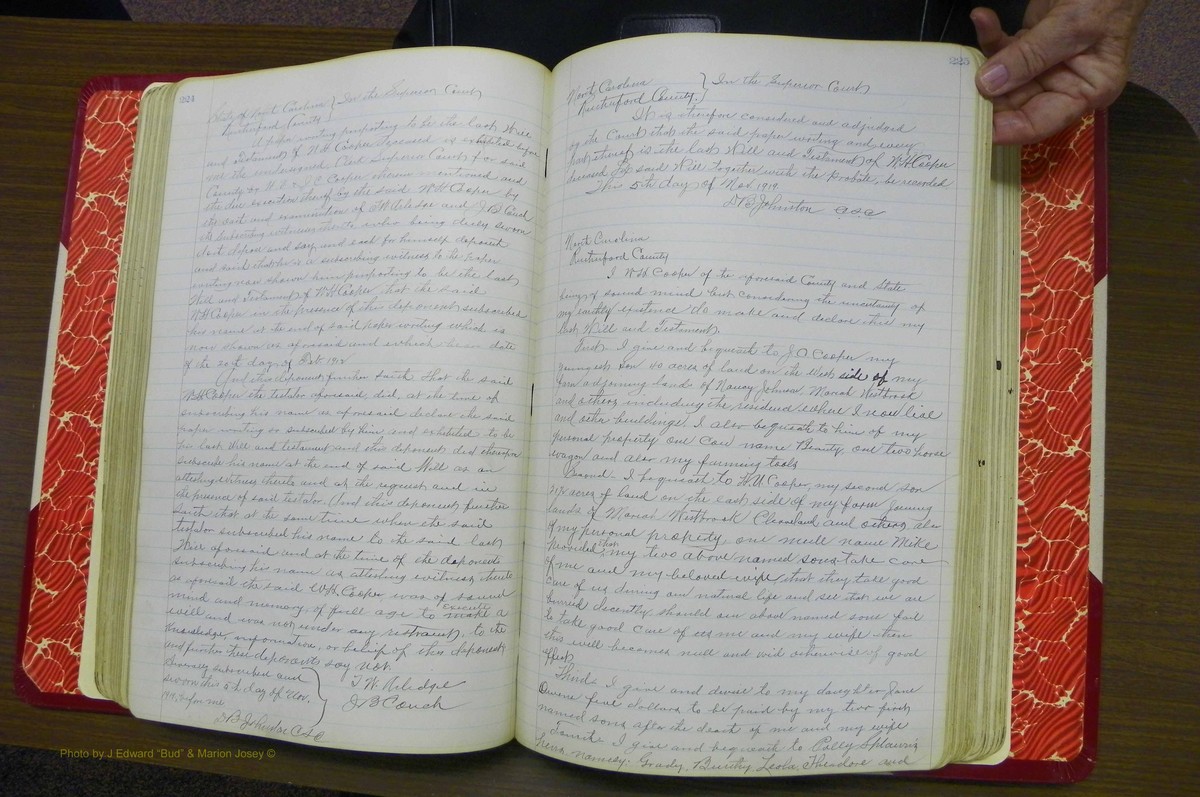 224
State of North Carolina } In the Superior Court
Rutherford County
A paper writing purporting to be the last Will
and Testament of W.H. Cooper deceased is exhibited before
me the undersigned Clerk Superior Court for said
County by W.U. & J.O. Cooper therein mentioned and
the due execution thereof by the said W.H. Cooper by
the oath and examination of T.W. and J.B. Couch
the subscribing witnesses thereto who being duly sworn
doth depose and say, and each for himself deposeth
and saith that he is a subscribing witness to the paper
writing now shown him purporting to be the last
Will and Testament of W.H. Cooper that the said
W.H. Cooper in the presence of this deponent subscribed
his name at the end of said paper writing which is
now shown as aforesaid and which bears date
of the 20th day of Feb. 1912
And this deponent further saith that the said
W.H. Cooper the testator aforesaid did, at the time of
subscribing his name as aforesaid declare the said
paper writing so subscribed by him and exhibited to be
his last Will and testament and this deponent did therefore
subscribe his name at the end of said Will as an
attesting witness thereto and at the request and in
the presence of said testator. And this deponent further
saith that at the same time when the said
testator subscribed his name to the said last
Will aforesaid and at the time of the deponents
subscribing his name as attesting witness thereto
as aforesaid the said W.H. Cooper was of sound
mind and memory of full age to execute make a
will and was not under any restraint, to the
knowledge, information, or belief of this deponent
and further these deponents say not.
Severally subscribed and
sworn this 5th day of Nov. T.W.
1919, before me J.B. Couch
D.B. Johnston C.S.C.
225
North Carolina } In the Superior Court
Rutherford County.
It is therefore considered and adjudged
by the Court that the said paper writing and every
part thereof is the last Will and Testament of W.H. Cooper
deceased for said Will together with the probate, be recorded
This 5th day of Nov. 1919.
D.B. Johnston C.S.C.
North Carolina
Rutherford County
I W.H. Cooper of the aforesaid County and State
being of sound mind but considering the uncertainty of
my earthly existence do make and declare this my
last Will and Testament.
First. I give and bequeath to J.O. Cooper my
youngest son 40 acres of land on the West side of my
farm adjoining lands of Nancy Johnson Marcal Westbrook
and others including the residence where I now live
and other buildings. I also bequeath to him of my
personal property one Cow name Beauty, one two horse
wagon and also my farming tools
Second. I bequeath to W.U. Cooper, my second son
acres of land on the East side of my farm joining
lands of Marcal Westbrook Cleaveland and others, also
of my personal property, one mule name Mike
Provided that my two above named sons take care
of me and my beloved wife that they take good
care of us during our natural life and see that we are
buried decently should our above named sons fail
to take good care of us me and my wife then
this will becomes null and void otherwise of good
effect
Third. I give and devise to my daughter Jane
Owens five dollars to be paid by my two first
named sons after the death of me and my wife
Fourth I give and bequeath to Polly
heirs namely: Grady, Leola, Theodore and
Photo by J Edward "Bud" & Marion Josey ©